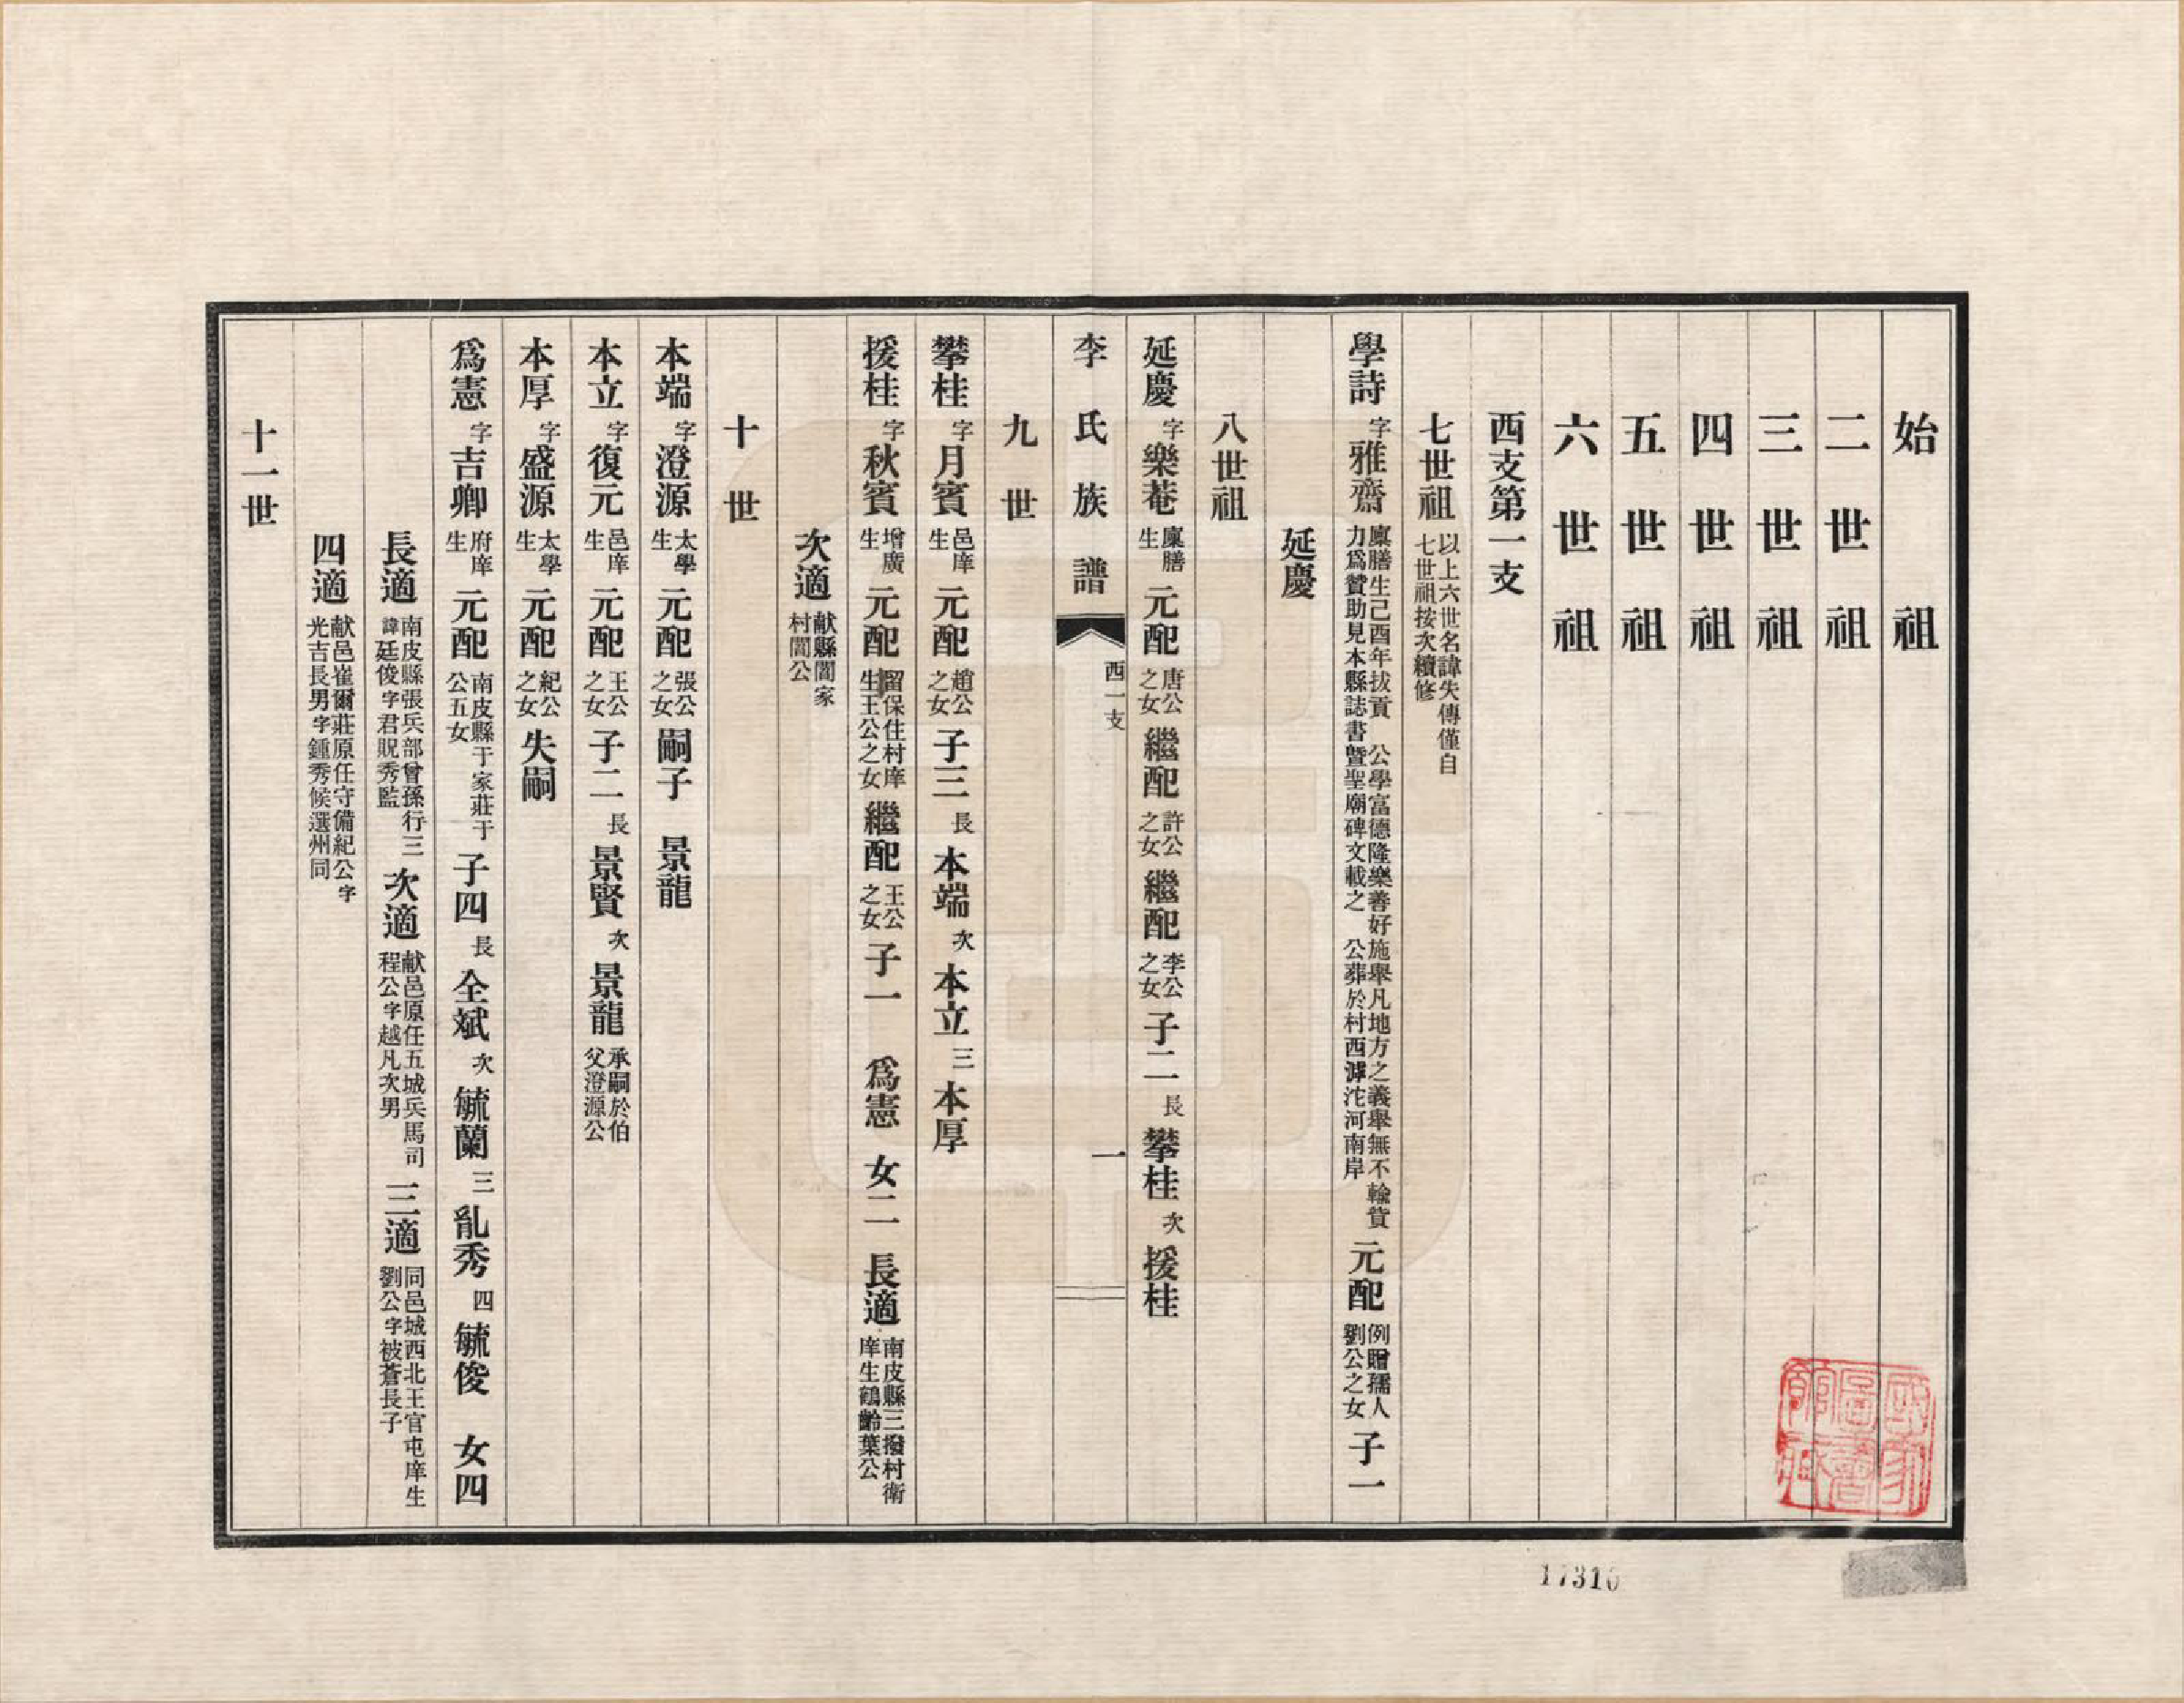 始祖
二世祖
三世祖
四世祖
五世祖
六世祖
西支第一支
七世祖 以上六世名諱失傳僅自七世祖按次續修
學詩 字雅齋 廩膳生己酉年拔貢 公學富德隆樂善好施舉凡地方之義舉無不輸貲力爲贊助見本縣誌書暨聖廟碑文載之 公葬於村西滹沱河南岸 元配 例贈孺人劉公之女 子一
延慶
八世祖
延慶 字樂菴 廩膳生 元配 唐公之女 繼配 許公之女 繼配 李公之女 子二 長攀桂 次援桂
李氏族譜 西一支 一
九世
攀桂 字月賓 邑庠生 元配 趙公之女 子三 長本端 次本立 三本厚
援桂 字秋賓 增廣生 元配 留保住村庠生王公之女 繼配 王公之女 子一 爲憲 女二 長適 南皮縣三撥村衛庠生鶴齡葉公
次適 献縣閻家村閻公
十世
本端 字澄源 太學生 元配 張公之女 嗣子 景龍
本立 字復元 邑庠生 元配 王公之女 子二 長景賢 次景龍 承嗣於伯父澄源公
本厚 字盛源 太學生 元配 紀公之女 失嗣
爲憲 字吉卿 府庠生 元配 南皮縣于家莊于公五女 子四 長全斌 次毓蘭 三亂秀 四毓俊 女四
長適 南皮縣張兵部曾孫行三諱廷俊字君貺秀監 次適 献邑原任五城兵馬司程公字越凡次男 三適 同邑城西北王官屯庠生劉公字被蒼長子
四適 献邑崔爾莊原任守備紀公字光吉長男字鍾秀候選州同
十一世
國家圖書館藏
17310